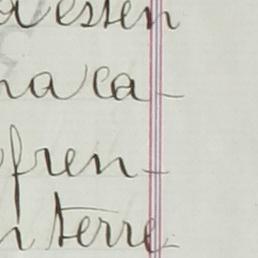 a esten
na ca-
fren-
n terre